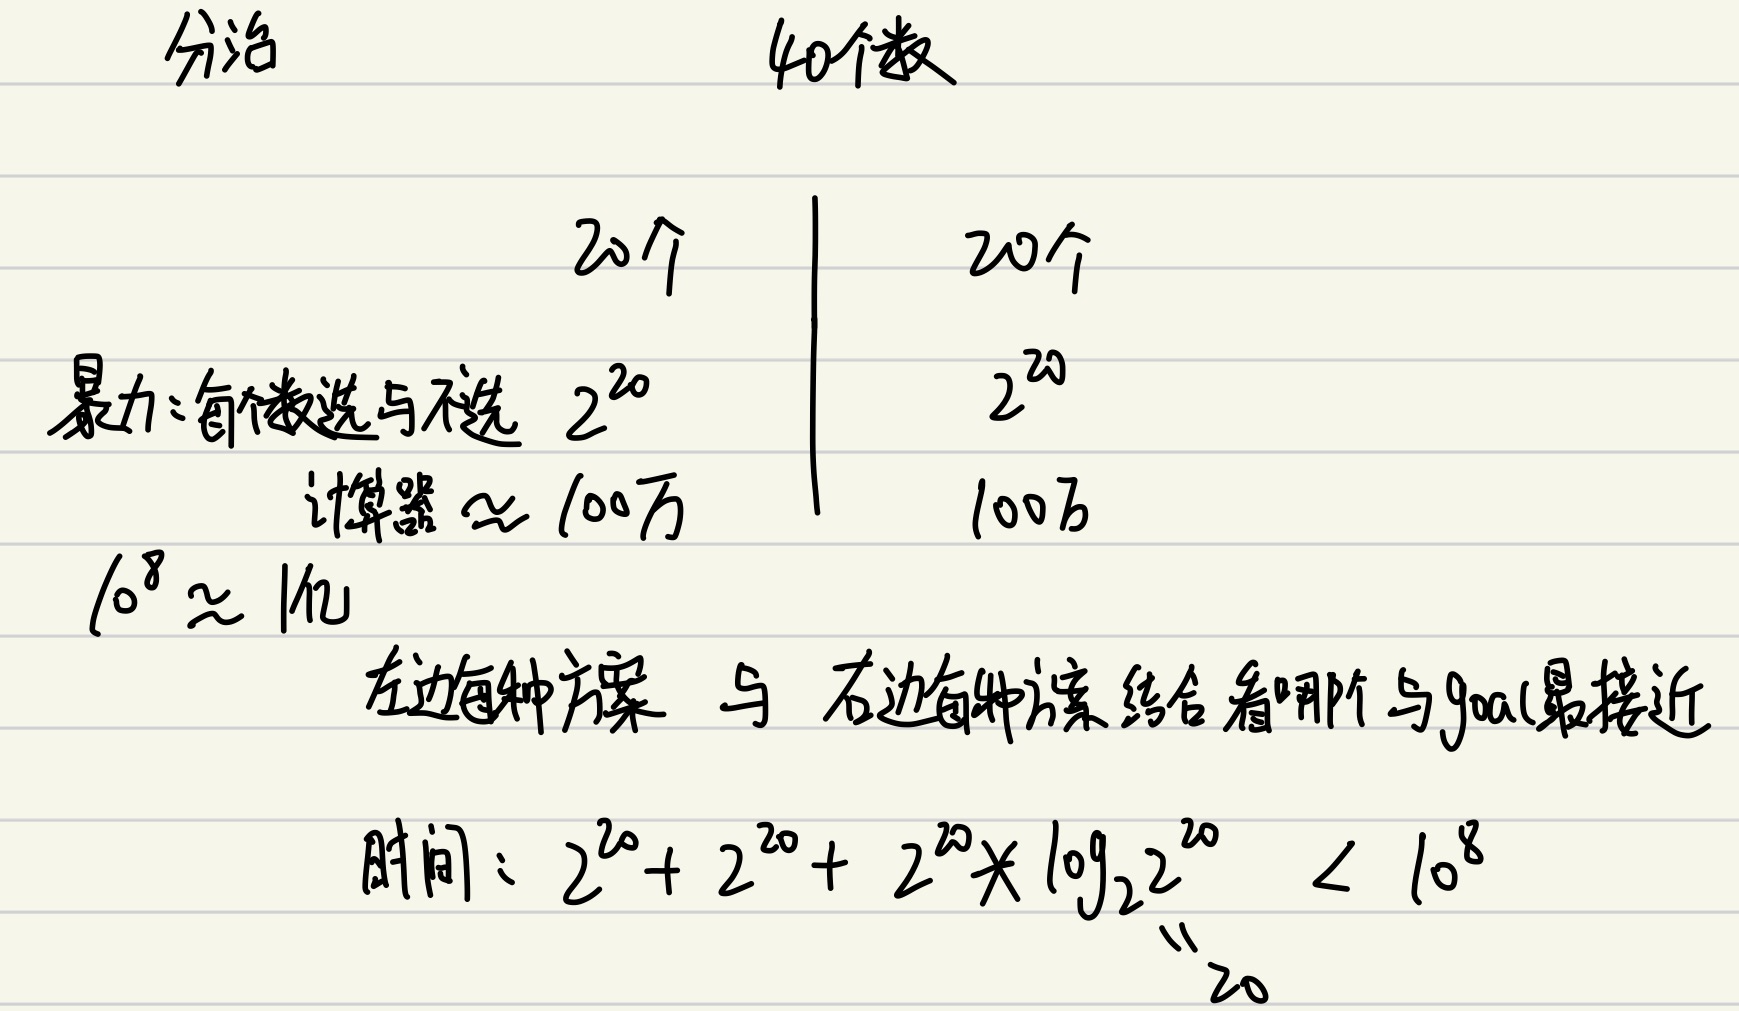 分治 40个数
20个 20个
暴力:每个数选与不选 2^20 2^20
计算器 ≈ 100万 100万
10^8 ≈ 1亿
左边每种方案 与 右边每种方案 结合 看哪个与goal最接近
时间: 2^20 + 2^20 + 2^20 * log_2 2^20 < 10^8
"
20